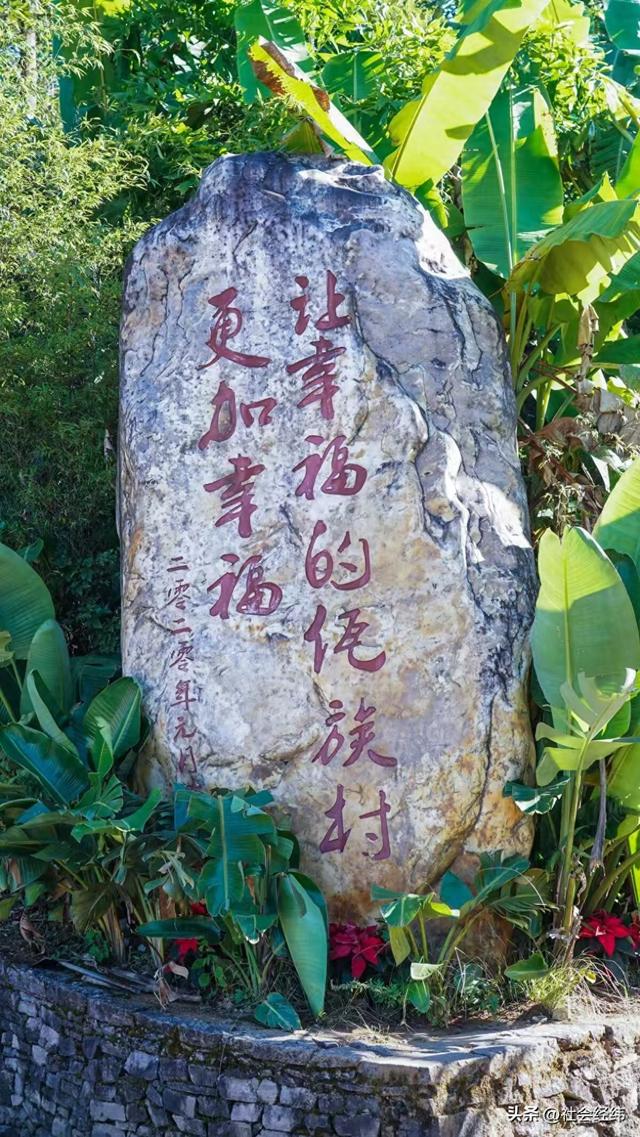 让幸福的佤族村
更加幸福
二零二零年元月
头条 @社会经纬